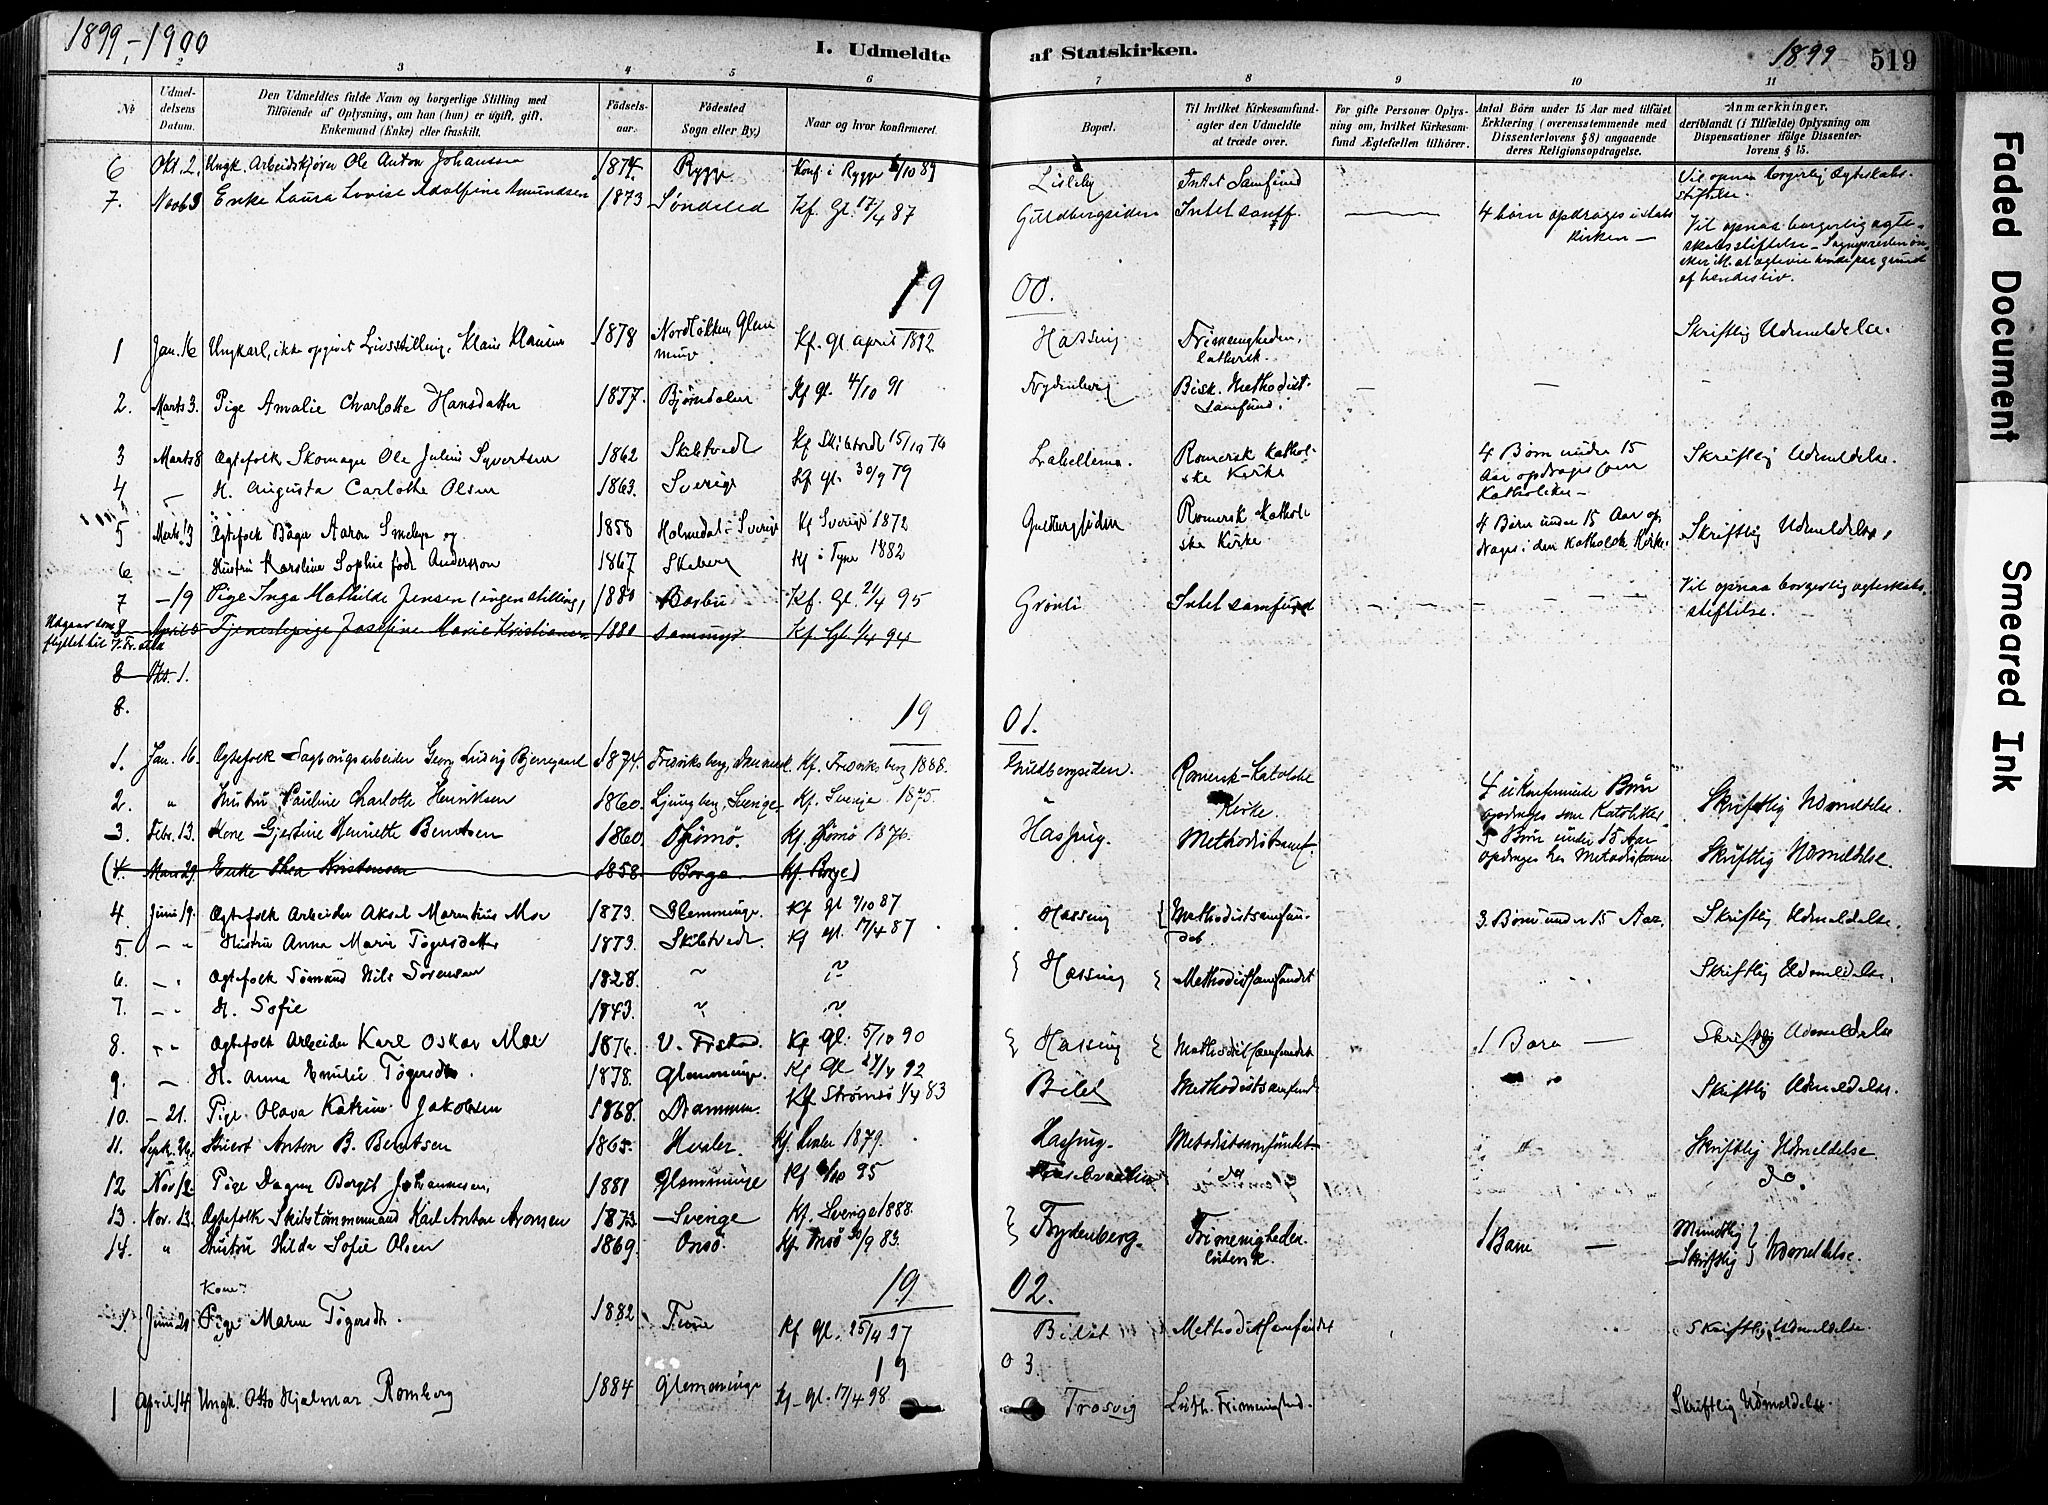 1899-1900
I. Udmeldte af Statskirken.
1899 519
1 2 3 4 5 6 7 8 9 10 11
No
Udmeldelsens Datum.
Den Udmeldtes fulde Navn og borgerlige Stilling med
Tilföiende af Oplysning, om han (hun) er ugift, gift,
Enkemand (Enke) eller fraskilt.
Födselsaar.
Födested
Sogn eller By.)
Naar og hvor konfirmeret.
Bopæl.
Til hvilket Kirkesamfund agter den Udmeldte at træde over.
For gifte Personer Oplysning om, hvilket Kirkesamfund Ægtefællen tilhörer.
Antal Börn under 15 Aar med tilföiet
Erklæring (overensstemmende med
Dissenterlovens § 8) angaaende
deres Religionsopdragelse.
Anmærkninger,
deriblandt (i Tilfælde) Oplysning om
Dispensationer ifölge Dissenterlovens § 15.
6 Okt. 2. Ungk. Arbeidskjører Ole Anton Johansen 1874. Rygge Konf. i Rygge /10 89 Lisleby Intet Samfund Vil opnaa borgerlig Ægteskabsstiftelse.
7. Novb 3 Enke Laura Lovise Adolfine Amundsen 1873 Søndeled Kf. Gl. 17/4 87 Guldbergsiden Intet samf. — 4 børn opdrages i statskirken — Vil opnaa borgerlig ægteskabsstiftelse –
af hendes liv.
1900.
1 Jan. 16 Ungkarl, ikke opgivet Livsstilling, Klaus Klausen 1878 Kf. Gl. april 1892 Hassing Frimenigheden, luthersk. Skriftlig Udmeldelse.
2. Marts 3. Pige Amalie Charlotte Hansdatter 1877. Bjørndalen Kf Gl. 4/10 91 Frydenberg Bisk. Methodistsamfund. — — —
3 Marts 8 Ægtefolk Skomager Ole Julius Syvertsen 1862 Skibtvedt Kf Skibtvedt 15/10 76 Labellema. Romersk katholske Kirke 4 Børn under 15 Aar opdrages som Katholiker – Skriftlig Udmeldelse.
4 H. Augusta Carlotte Olsen 1863. Sverige Kf Gl. 30/9 79
5 Marts 13 Ægtefolk Bager Aaron Smeby og 1858 Holmedal i Sverige Kf Sverige 1872 Guldbergsiden Romersk Katholske Kirke 4 Børn under 15 Aar opdrages i den Katholsk Kirke. Skriftlig Udmeldelse,
6 — Hustru Karoline Sophie født Andersson 1867 Skaberg Kf i Tyne 1882
7 — 19 Pige Inga Mathilde Jensen (ingen stilling) 1880 Barbu Kf. Gl. 2/4 95 Grønli Intet samfund — — — Vil opnaa borgerlig ægteskabsstiftelse.
8 April 5 Tjenestepige Josefine Marie Kristiansen 1880 Kf. Gl 1/4 94
8 Okt. 1.
8.
1901.
1. Jan. 16. Ægtefolk Sagbrugsarbeider Georg Ludvig Bjerregaard 1874. Fredriksberg, Danmark. Kf. Fredriksberg 1888. Guldbergsiden. Romersk-Katolske Kirke. 4 ukonfirmerede Børn opdrages som Katoliker. Skriftlig Udmeldelse.
2. " Hustru Pauline Charlotte Henriksen 1860. Ljungberg, Sverige. Kf. Sverige 1875.
3. Febr. 13. Kone Gjertine Henriette Berntsen 1860 Kf. 1876. Hassing. Methodistsamf. 5 Børn under 15 Aar opdrages hos Metodisterne Skriftlig Udmeldelse.
(4. Mars 29. Enke Thea Kristensen 1858. Borge. Kf. Borge)
4 Juni 19. Ægtefolk Arbeider Aksel Marentius Moe 1873. Glemminge. Kf Gl 9/10 87 Hassing { Methodistsamfundet. 3. Børn under 15 Aar. Skriftlig Udmeldelse.
5 — Hustru Anna Marie Tøgersdatter 1873. Skibtvedt. Kf Gl. 17/4 87
6. — Ægtefolk Sømand Nils Sørensen 1828. ~ ~ } Hassing { Methodistsamfundet Skriftlig Udmeldelse.
7. — H. Sofie 1843. ~ ~
8. " Ægtefolk Arbeider Karl Oskar Moe 1876. V. Fr.stad. Kf Gl. 5/10 90 } Hassing { Methodistsamfundet 1 Barn — Skriftlig Udmeldelse
9. — H. Anna Emilie Tøgersdtr. 1878. Glemminge. Kf Gl 24/4 92
10. — 21. Pige Olava Katrine Jakobsen 1868. Drammen. Kf Strømsø 1/4 83 Bilet Methodistsamfund Skriftlig Udmeldelse.
11. Sept. 26. Stuert Anton B. Berntsen 1865. Hvaler. Kf. Hvaler 1879. Hassing. Metodistsamfundet " Skriftlig Udmeldelse
12 Nov 12 Pige Dagny Borgit Johannesen, 1881 Glemminge Kf /10 95 do do.
13. Nov. 13. Ægtefolk Skibstømmermand Karl Anton Aronsen 1873 Sverige Kf. Sverige 1888. } Frydenberg. Frimenigheden lutersk. 1 Barn — Mundtlig } Udmeldelse.
14. " Hustru Hilda Sofie Olsen 1869. Onsø. Kf. Onsø 30/9 83. Skriftlig }
1902.
Kone
1. Juni 21 Pige Maren Tøgersdtr. 1882 Tune Kf Gl. 25/4 97 Bilet Methodistsamfundet Skriftlig Udmeldelse.
1903.
1 April 14 Ungk. Otto Hjalmar Romberg 1884 Glemminge Kf. Gl. 17/4 98 Trosvig Luth. Frimenighed. Skriftlig Udmeldelse.
Faded Document
Smeared Ink